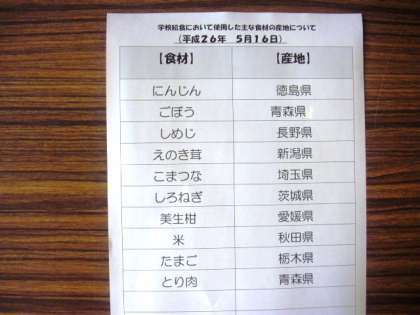 学校給食において使用した主な食材の産地について
(平成26年 5月16日)
【食材】 【産地】
にんじん 徳島県
ごぼう 青森県
しめじ 長野県
えのき茸 新潟県
こまつな 埼玉県
しろねぎ 茨城県
美生柑 愛媛県
米 秋田県
たまご 栃木県
とり肉 青森県